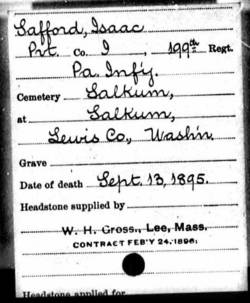 Safford, Isaac
Pvt. Co. I, 199th Regt.
Pa. Inf'y.
Cemetery Salkum,
at Salkum,
Lewis Co., Wash'n.
Grave
Date of death Sept. 13, 1895.
Headstone supplied by
W. H. Gross, Lee, Mass.
CONTRACT FEB'Y 24, 1896;
Headstone applied for